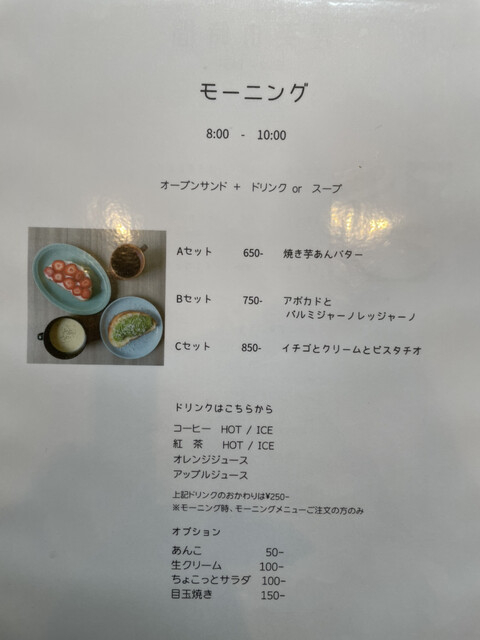 モーニング
8:00 - 10:00
オープンサンド + ドリンク or スープ
Aセット 650- 焼き芋あんバター
Bセット 750- アボカドと
パルミジャーノレッジャーノ
Cセット 850- イチゴとクリームとピスタチオ
ドリンクはこちらから
コーヒー HOT / ICE
紅 茶 HOT / ICE
オレンジジュース
アップルジュース
上記ドリンクのおかわりは¥250-
※モーニング時、モーニングメニューご注文の方のみ
オプション
あんこ 50-
生クリーム 100-
ちょこっとサラダ 100-
目玉焼き 150-